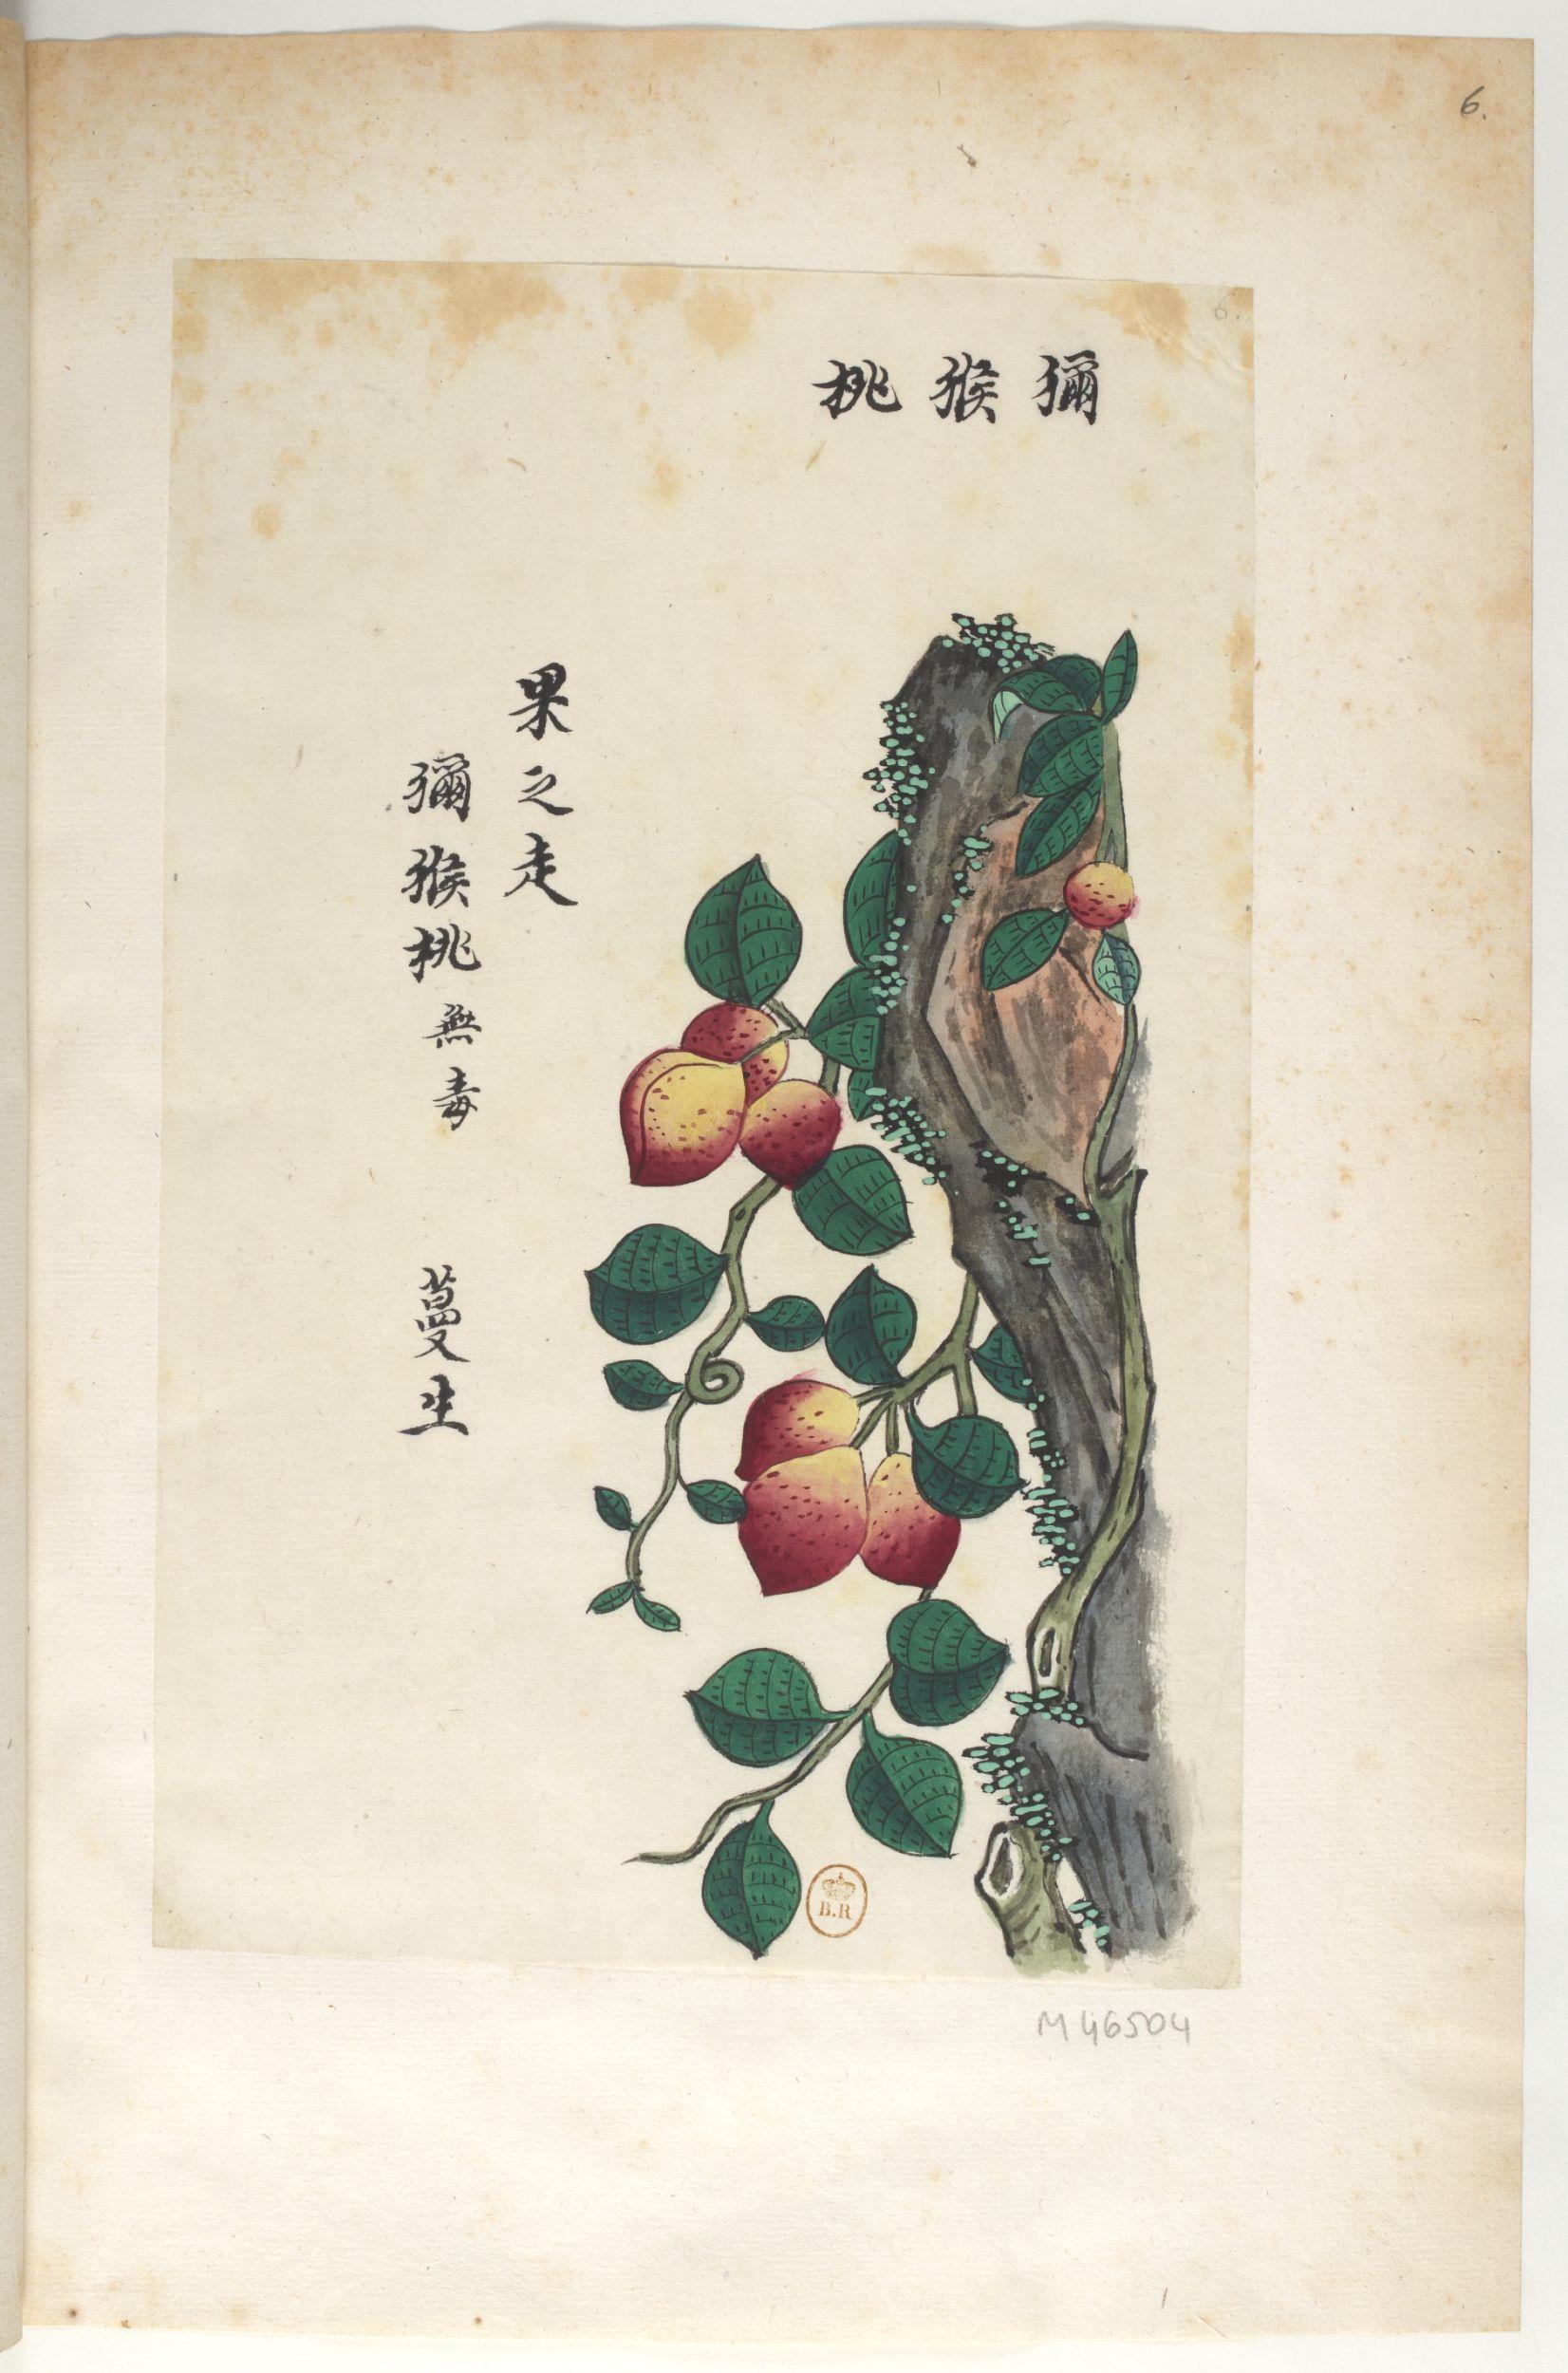 6.
6.
獼猴桃
果之走
獼猴桃無毒 蔓生
B.R
M 46504